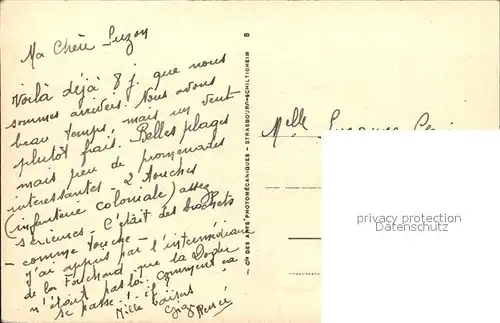 Ma Chère Suzon
Voilà déjà 8 j. que nous
sommes arrivées. Nous avons
beau temps, mais un vent
plutôt frais. Belles plages
mais peu de promenades
intéressantes - 2 touches
(infanterie coloniale) assez
sérieuses - C'était des brochets
comme touche -
J'ai appris par l'intermédiaire
de la que la
n'était pas là. Comment ça
se passe
Mille baisers
8
CIE DES ARTS PHOTOMÉCANIQUES - STRASBOURG-SCHILTIGHEIM
Melle Suzanne
privacy protection
Datenschutz